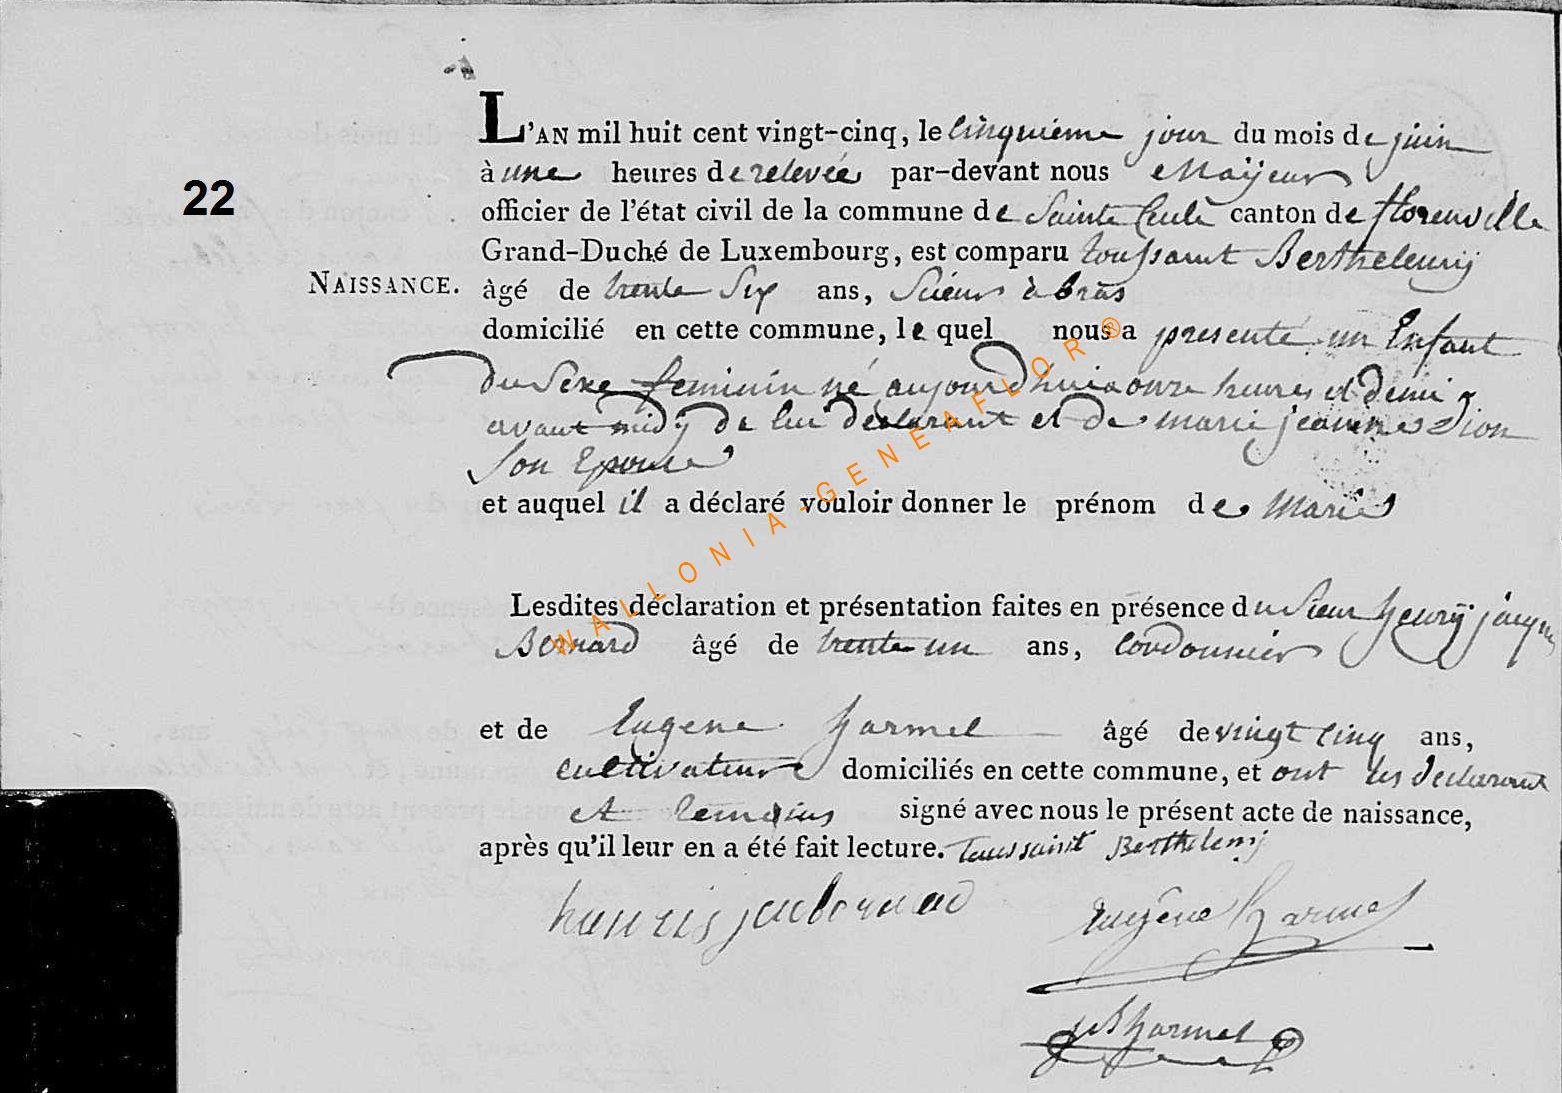 L'AN mil huit cent vingt-cinq, le cinquieme jour du mois de juin
à une heures de relevée par-devant nous Maÿeur
22
officier de l'état civil de la commune de Sainte Cecile canton de florenville
Grand-Duché de Luxembourg, est comparu toussaint Berthelemij
NAISSANCE.
âgé de trente Six ans, Scieur à bras
domicilié en cette commune, le quel nous a presenté un Enfant
du Sexe feminin né aujourd'hui a onze heures et demi
avant midy de lui déclarant et de marie jeanne Dion
Son Epouse
et auquel il a déclaré vouloir donner le prénom de Marie
WALLONIA-GENEAFLOR®
Lesdites déclaration et présentation faites en présence du Sieur henrÿ jacque
Bernard âgé de trente un ans, Cordonnier
et de Eugene harmel âgé de vingt Cinq ans,
cultivateur domiciliés en cette commune, et ont les declarant
et temoins signé avec nous le présent acte de naissance,
après qu'il leur en a été fait lecture. Toussaint Berthelemij
Eugène harmel
harmel